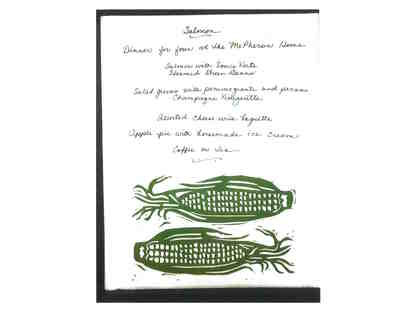 Salmon
Dinner for four at the McPheron Home
Salmon with
Steamed Green Beans
Salad greens with pomegranate and pecans
Champagne Vinaigrette
Assorted cheese with baguette
Apple pie with homemade ice cream
Coffee or Tea